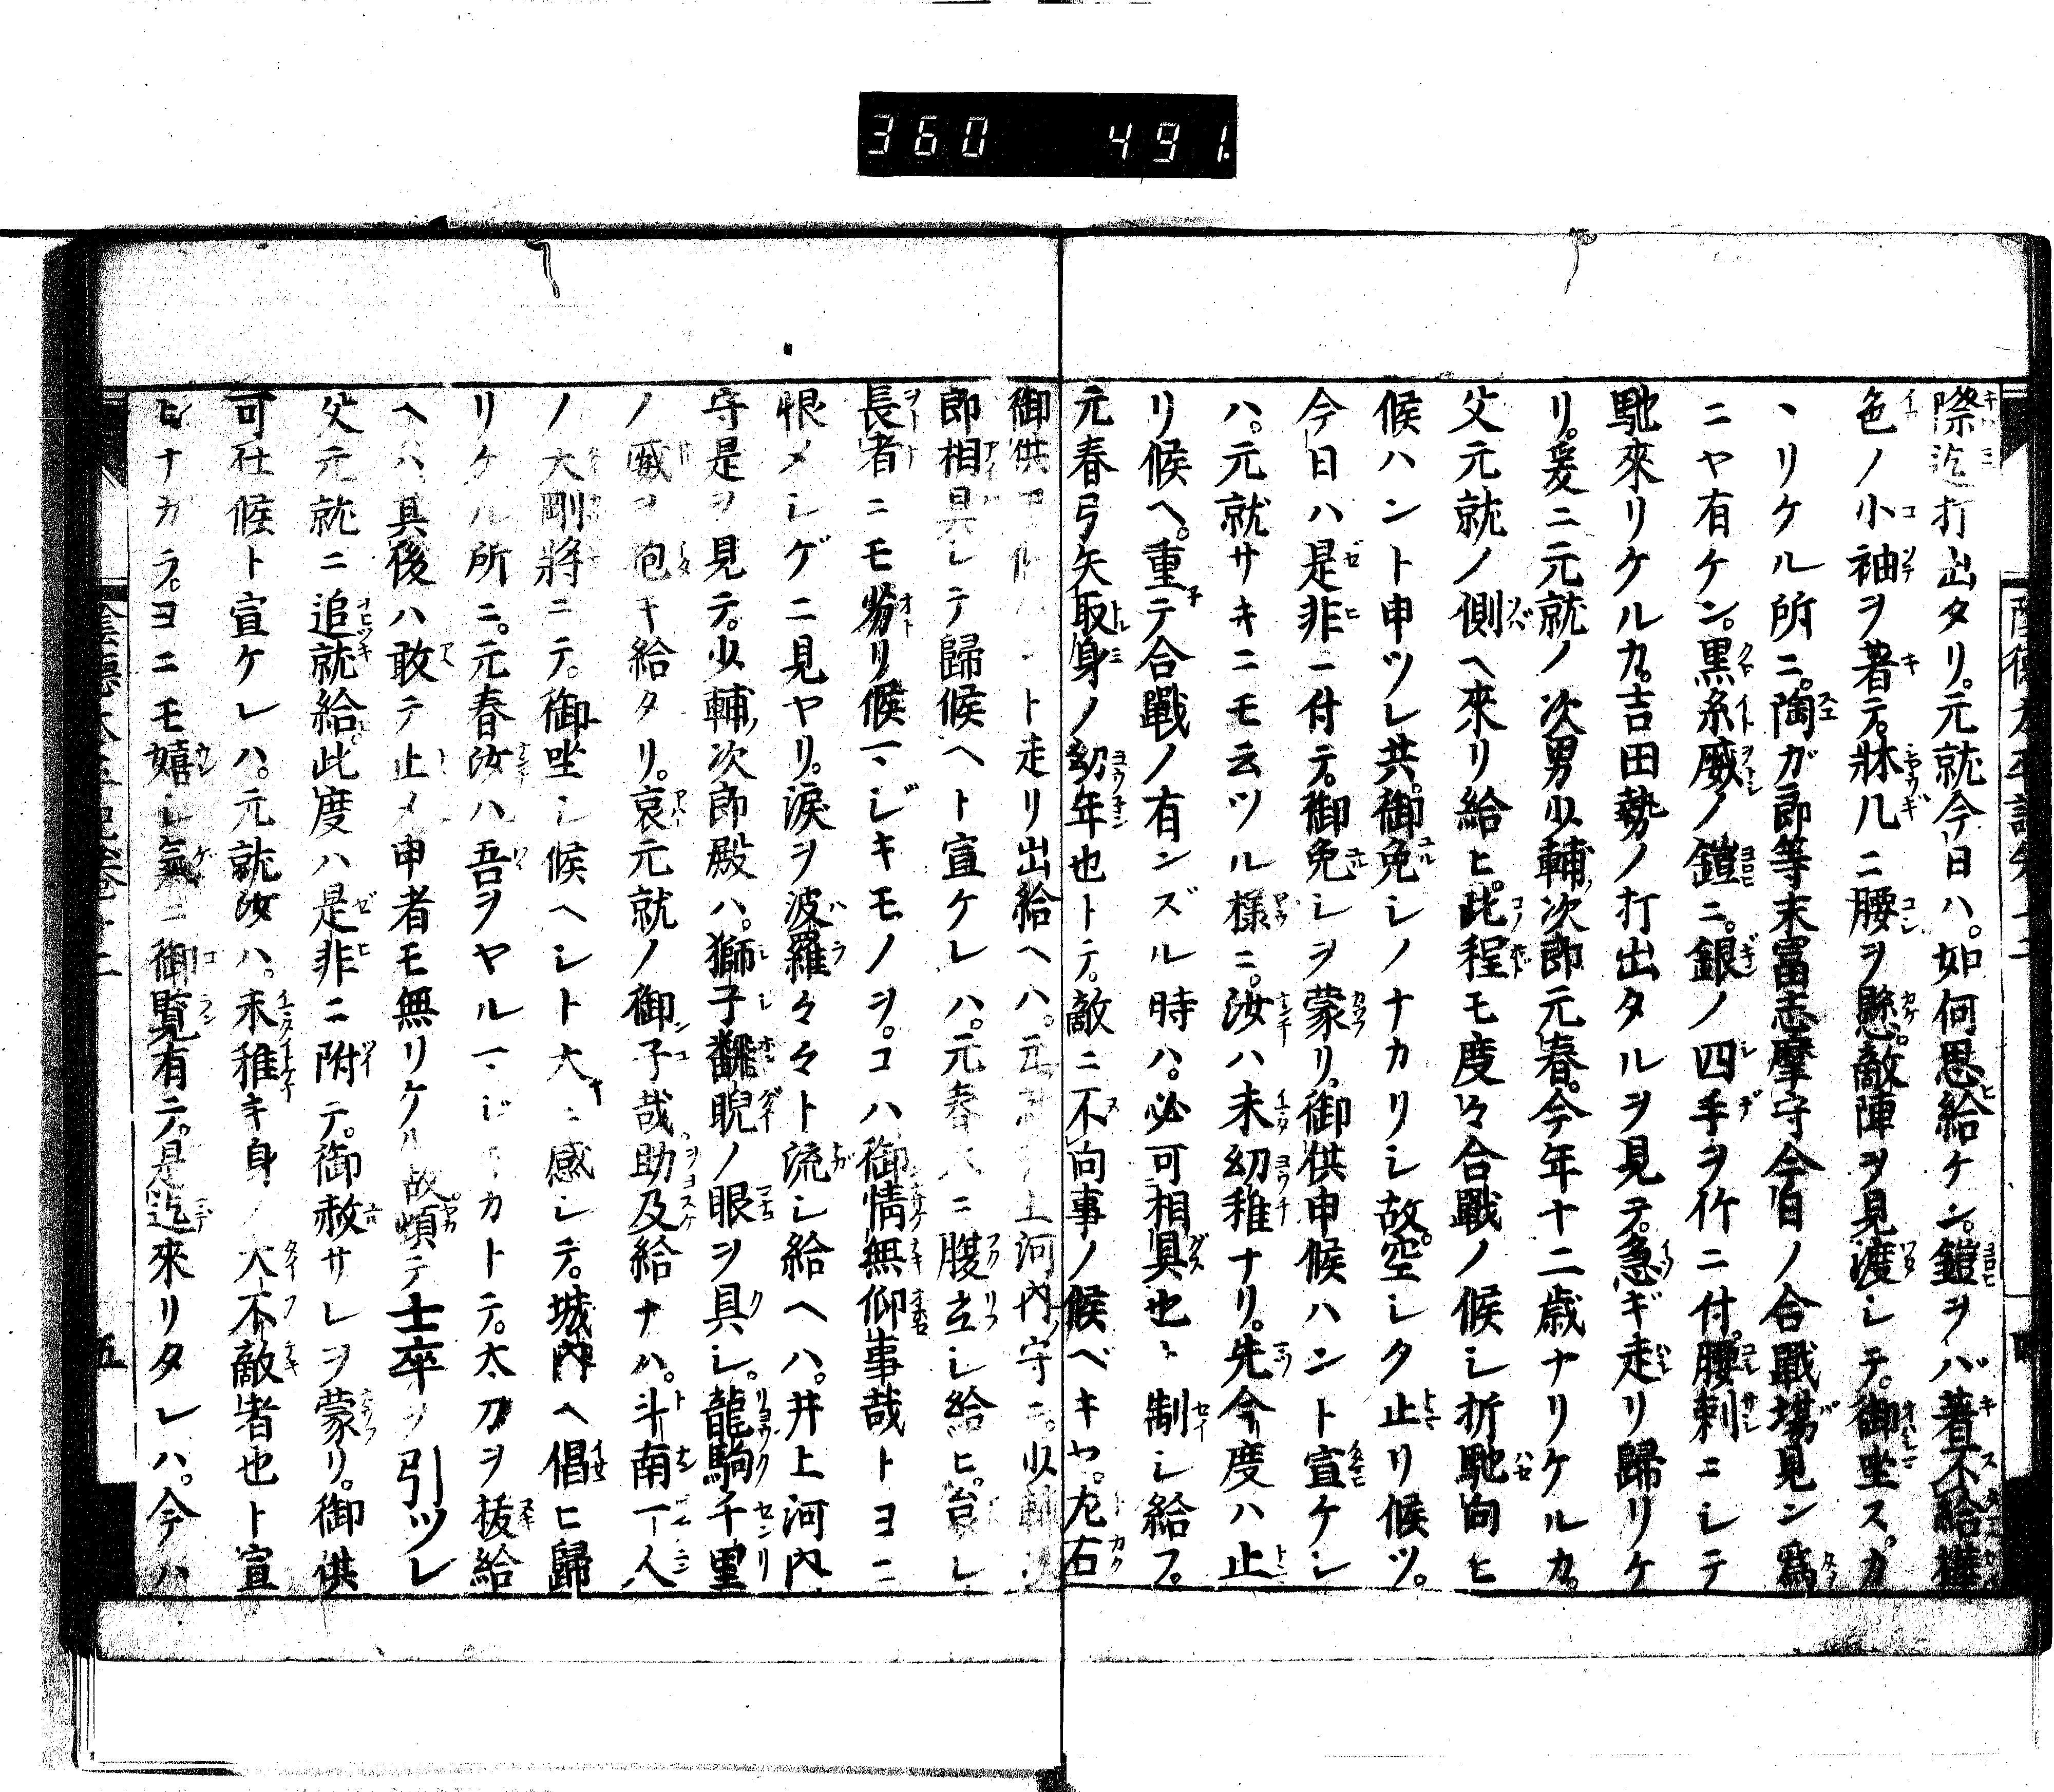 360 491.
際迄打出タリ。元就今日ハ。如何思給ケン。鎧ヲバ著不給樺
色ノ小袖ヲ著テ。牀几ニ腰ヲ懸。敵陣ヲ見渡シテ。御坐ス。カ
ヽリケル所ニ。陶ガ郎等末富志摩守今日ノ合戰塲見ン爲
ニヤ有ケン。黒糸威ノ鎧ニ。銀ノ四手ヲ竹ニ付。腰刺ニシテ
馳來リケルカ。吉田勢ノ打出タルヲ見テ。急ギ走リ歸リケ
リ。爰ニ元就ノ次男少輔次郎元春。今年十二歳ナリケルカ。
父元就ノ側ヘ來リ給ヒ。此程モ度々合戰ノ候シ折馳向ヒ
候ハント申ツレ共。御免シノナカリシ故。空シク止リ候ツ。
今日ハ是非ニ付テ。御免シヲ蒙リ。御供申候ハント宣ケレ
ハ。元就サキニモ云ツル様ニ。汝ハ未幼稚ナリ。先今度ハ止
リ候ヘ。重テ合戰ノ有ンズル時ハ。必可相具也ト制シ給フ。
元春弓矢取身ノ幼年也トテ。敵ニ不向事ノ候ベキヤ。左右
御供ト走リ出給ヘハ。元就井上河内守ニ。少輔次
郎相具シテ歸候ヘト宣ケレハ。元春大ニ腹立シ給ヒ。
長者ニモ劣リ候マジキモノヲ。コハ御情無仰事哉トヨニ
恨メシゲニ見ヤリ。涙ヲ波羅々々ト流シ給ヘハ。井上河内
守是ヲ見テ。少輔次郎殿ハ。獅子飜睨ノ眼ヲ具シ。龍駒千里
ノ威ヲ抱キ給タリ。哀元就ノ御子哉助及給ナハ。斗南一人
ノ大剛將ニテ。御坐シ候ヘシト大ニ感シテ。城内ヘ倡ヒ歸
リケル所ニ。元春汝ハ吾ヲヤルマジキカトテ。太刀ヲ抜給
ヘハ。其後ハ敢テ止メ申者モ無リケル故。頓テ士卒ヲ引ツレ
父元就ニ追就給。此度ハ是非ニ附テ。御赦サレヲ蒙リ。御供
可仕候ト宣ケレハ。元就汝ハ。未稚キ身ノ大不敵者也ト宣
ヒナガラ。ヨニモ嬉シ氣ニ御覽有テ。是迄來リタレハ。今ハ
五